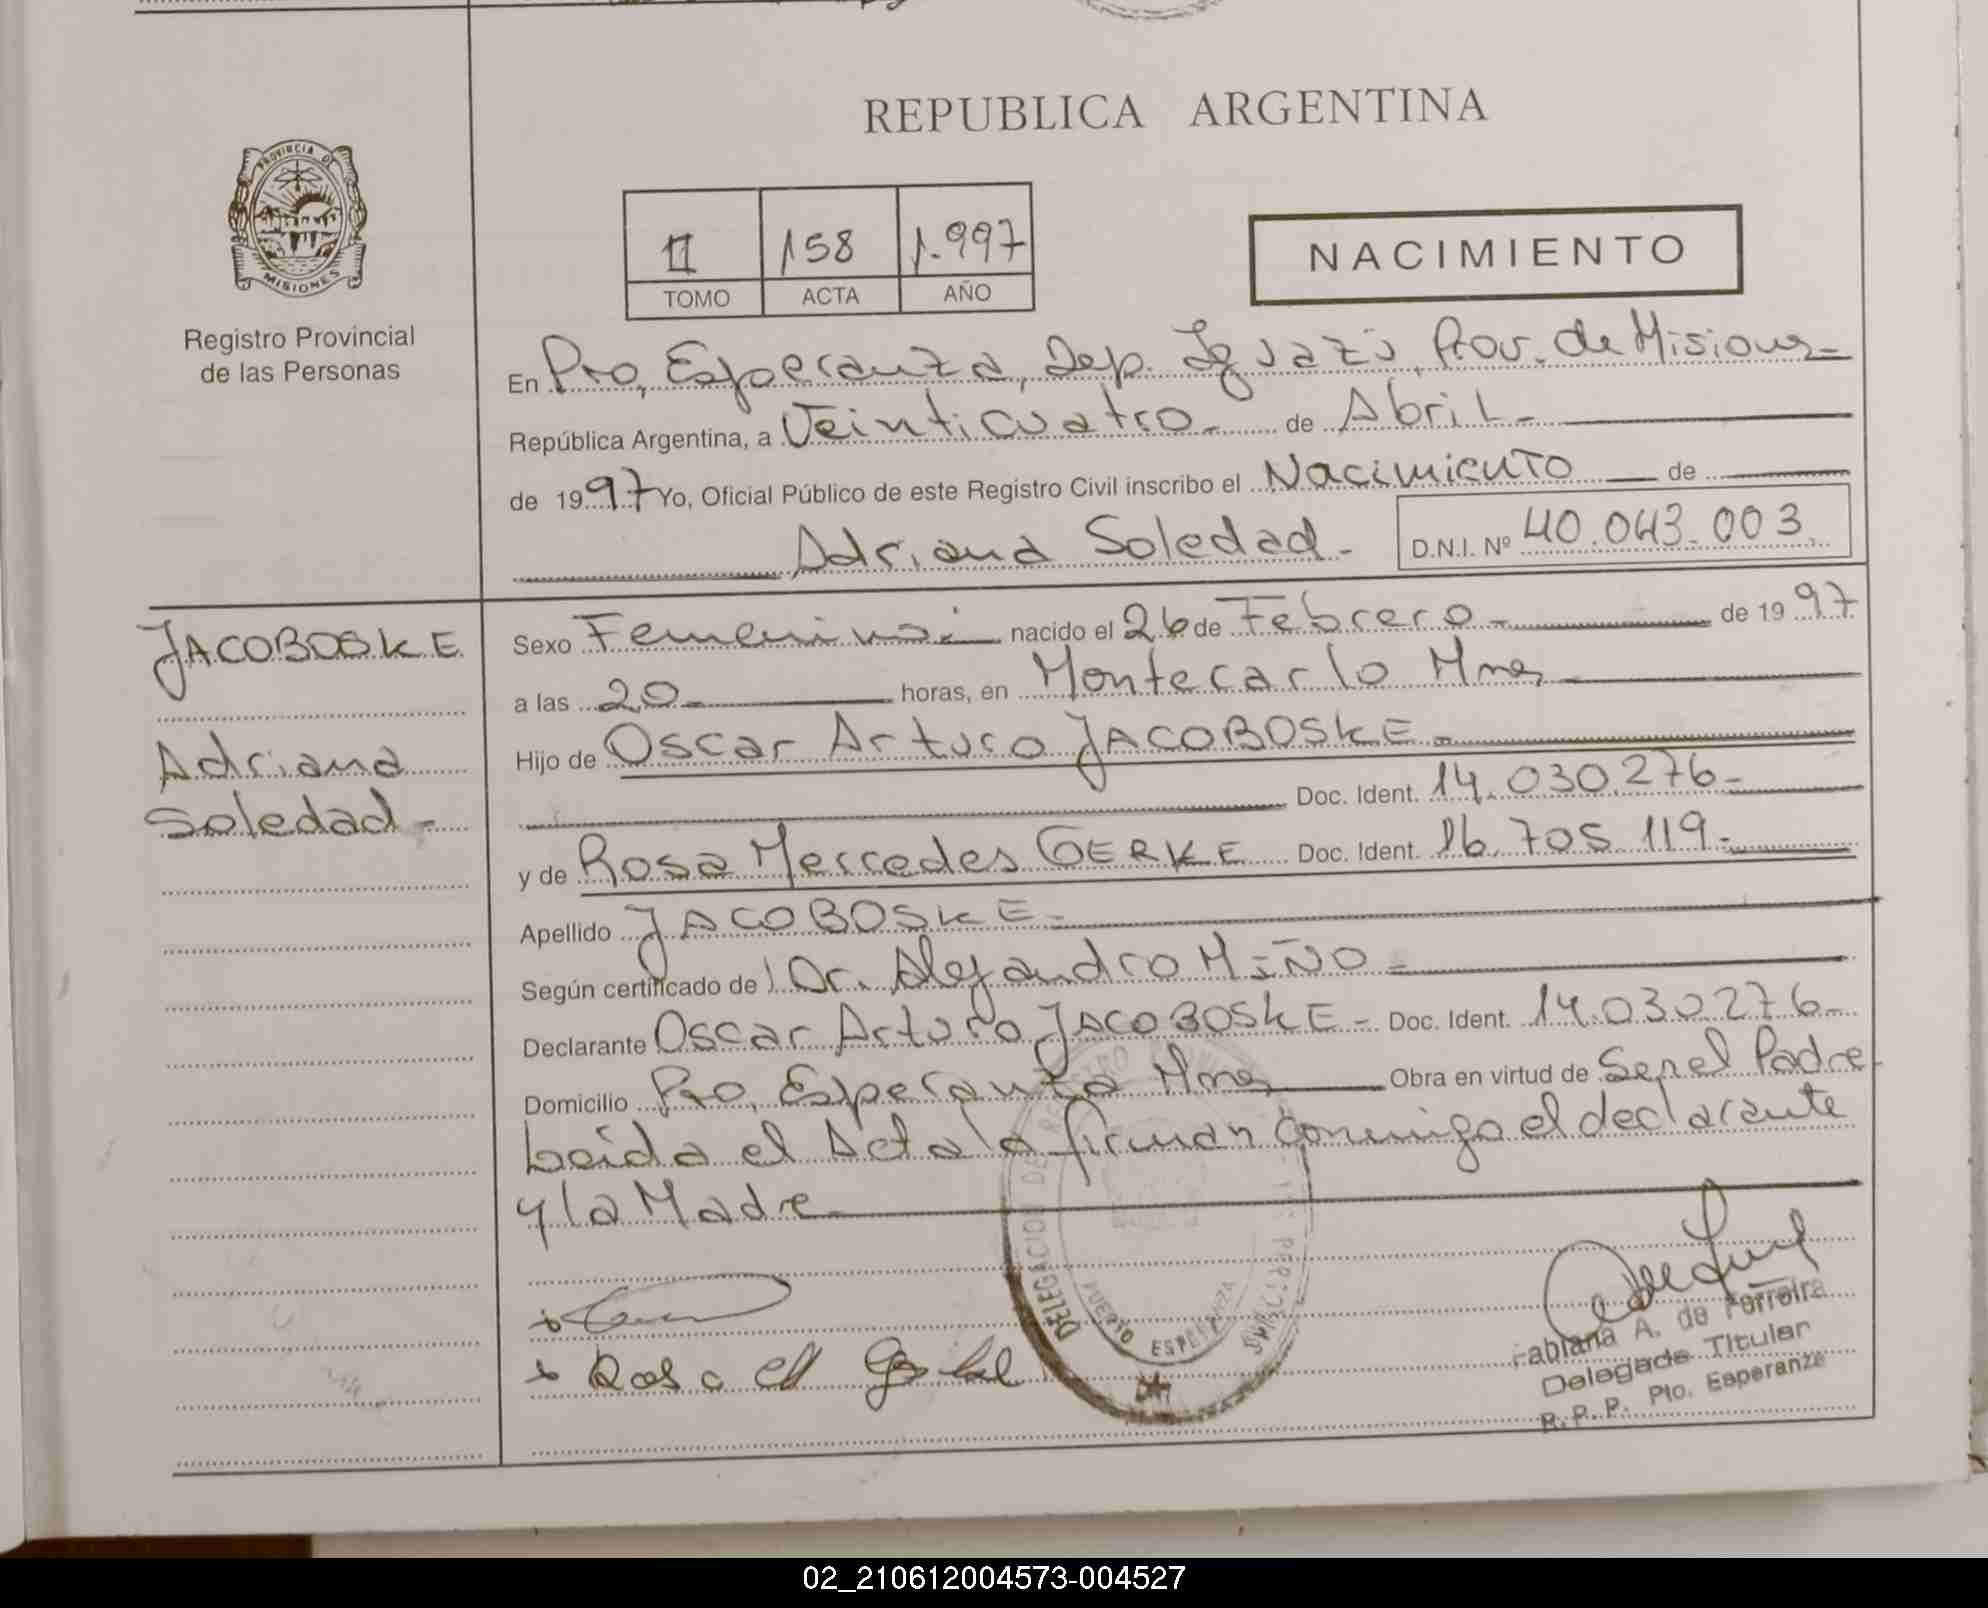 REPUBLICA ARGENTINA
PROVINCIA DE
MISIONES
Registro Provincial
de las Personas
II 158 1.997
TOMO ACTA AÑO
NACIMIENTO
En Pto, Esperanza, Dep. Iguazú, Prov. de Misiones
República Argentina, a Veinticuatro de Abril
de 1997 Yo, Oficial Público de este Registro Civil inscribo el Nacimiento de
Adriana Soledad D.N.I. Nº 40.043.003
JACOBOSKE
Adriana
Soledad
Sexo Femenino nacido el 26 de Febrero de 1997
a las 20 horas, en Montecarlo Mnes
Hijo de Oscar Arturo JACOBOSKE
Doc. Ident. 14.030.276
y de Rosa Mercedes GERKE Doc. Ident. 16.705.119
Apellido JACOBOSKE
Según certificado de Dr. Alejandro MIÑO
Declarante Oscar Arturo JACOBOSKE Doc. Ident. 14.030.276
Domicilio Pto, Esperanza Mnes Obra en virtud de Ser el Padre
Leida el Acta la firman conmigo el declarante
y la Madre
DELEGACION DE
PUERTO ESPERANZA
Rosa M
Fabiana A. de Ferreira
Delegada Titular
R.P.P. Pto. Esperanza
02_210612004573-004527